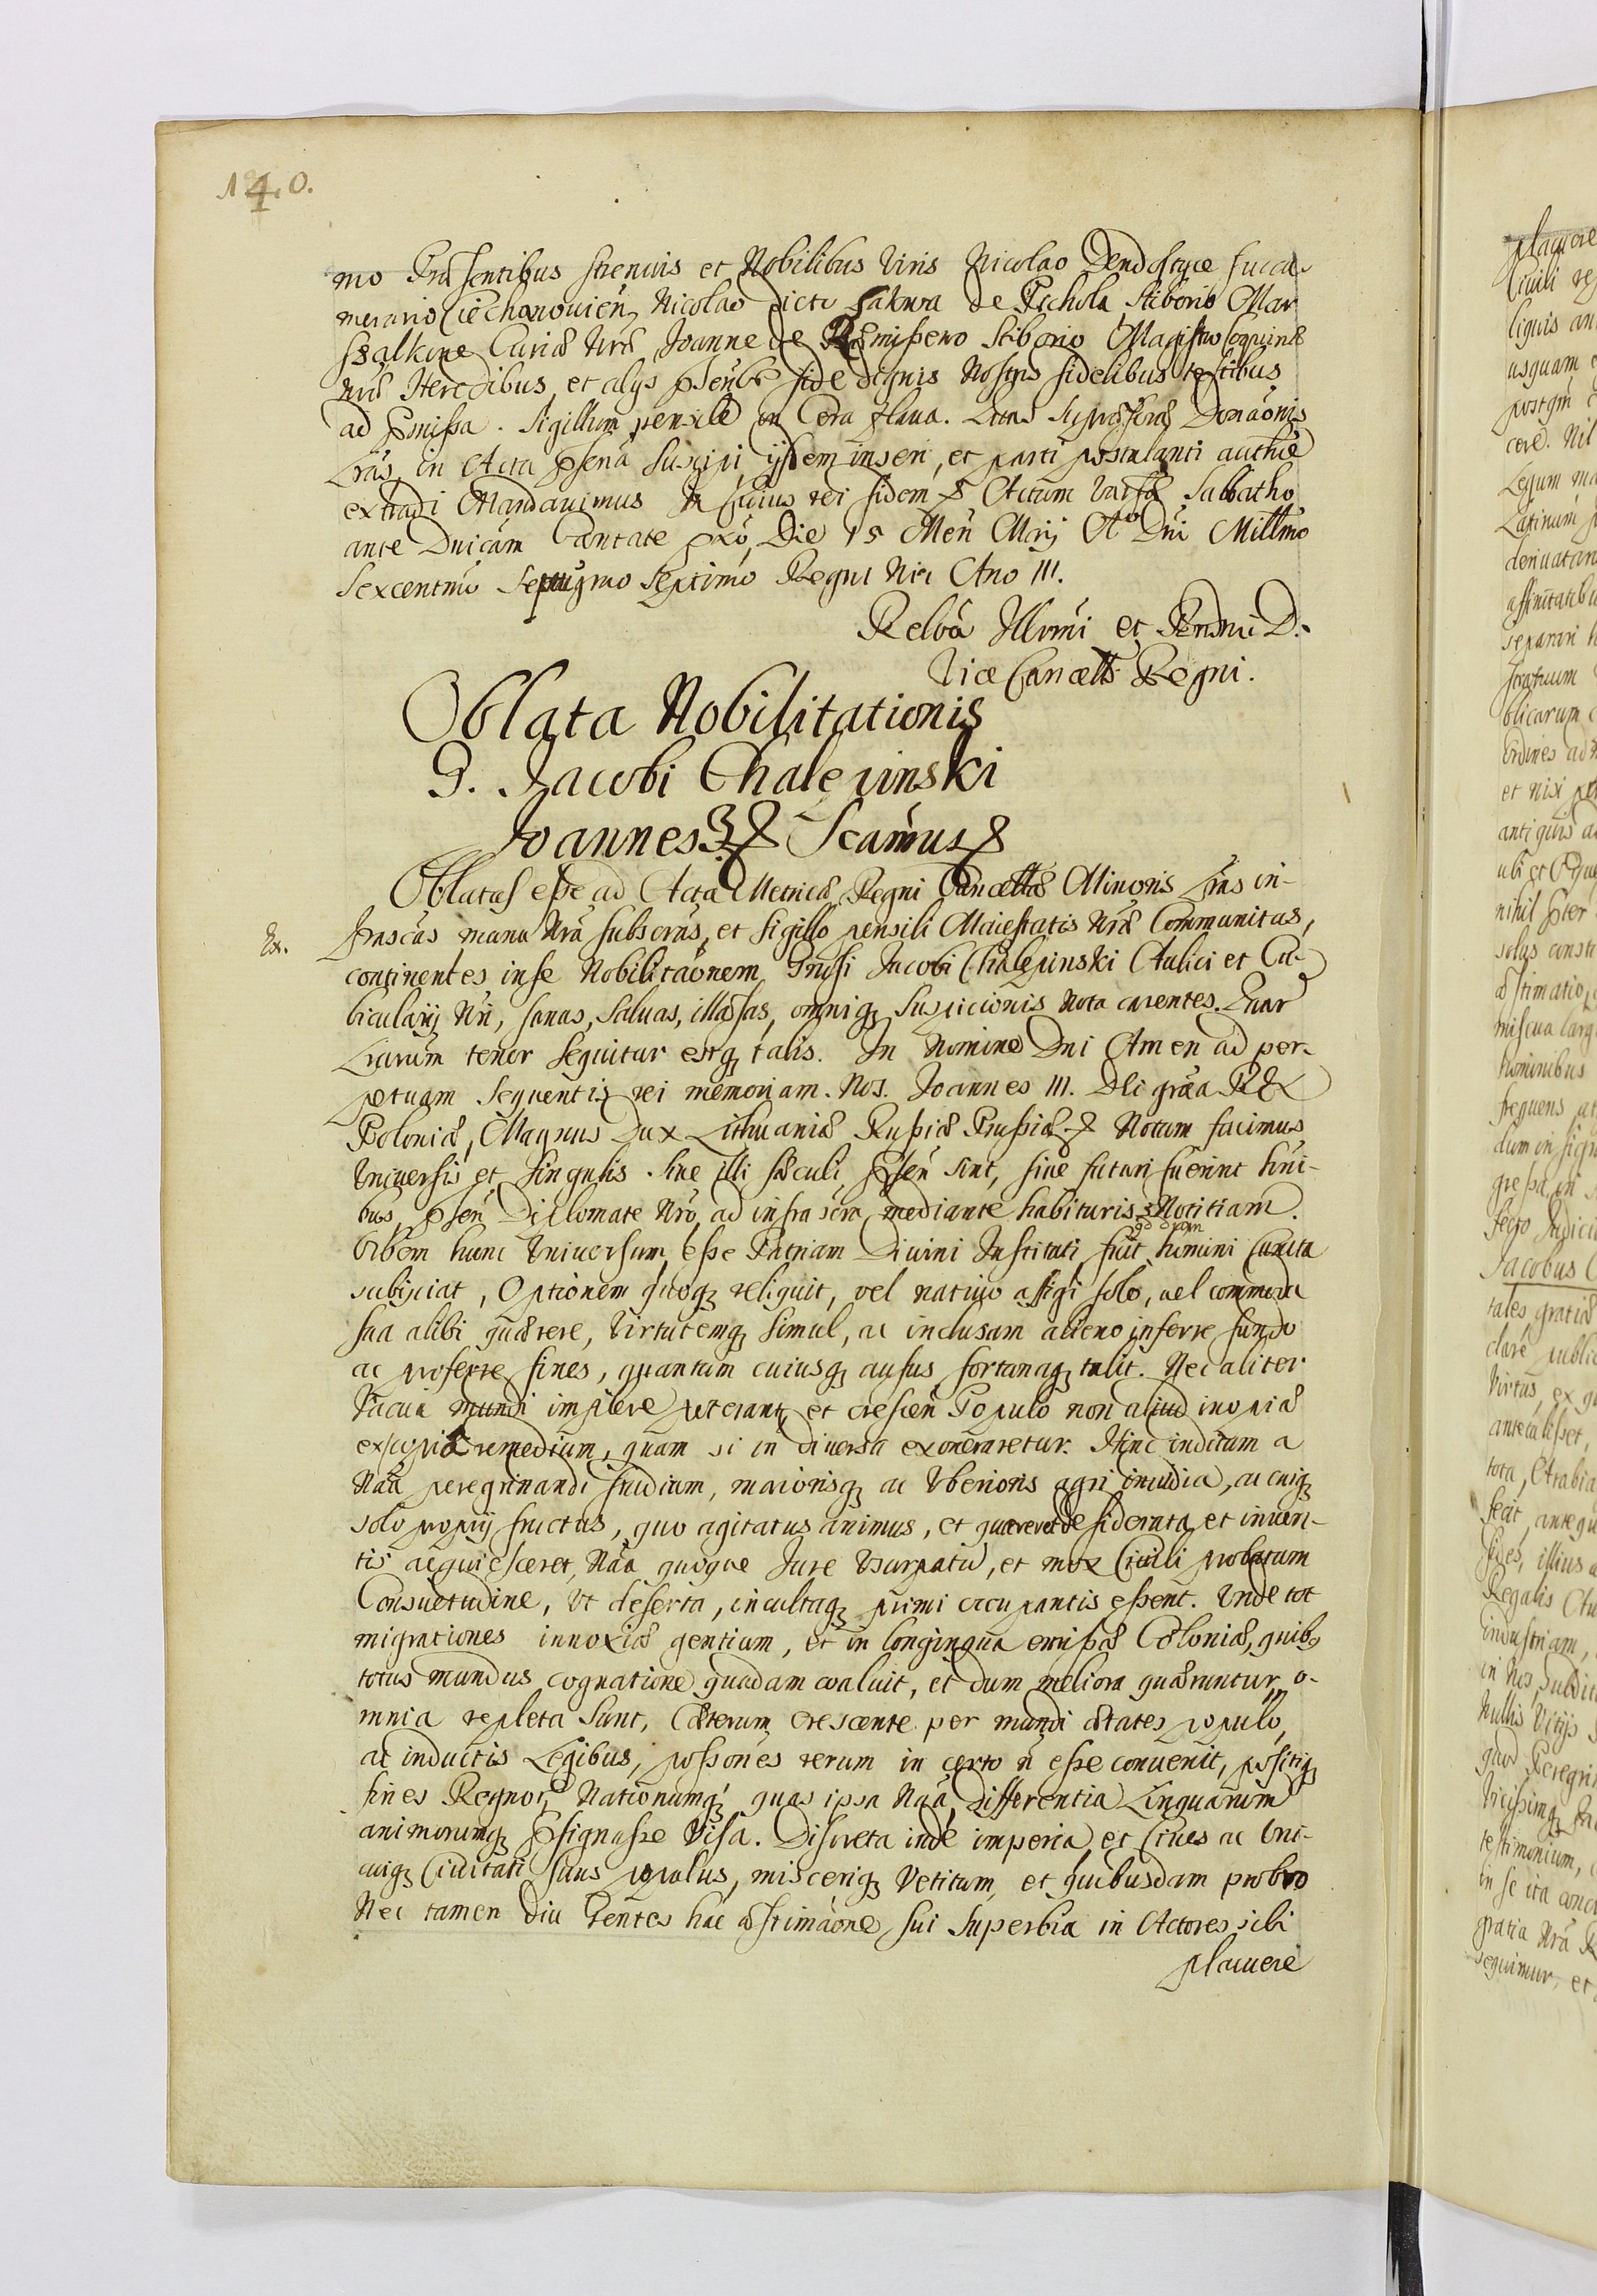 140.
mo Præsentibus strenuis et Nobilibus Viris Nicolao Dendostyce succa-
merario Ciechanouień, Nicolao dicto Sakwa de Pichola, Stiborio Mar
szalkone Curiæ Nræ Joanne de Remiszewo Stiborio Magistro equinæ
nræ Heredibus, et alys pseńbs fide dignis Nostris fidelibus testibus
ad pmissa. Sigillum pensile in Cera flaua. Quas supra scras Donaõnis
Lras, in Acta psenã Suscipi, ijsdem inseri, et parti postulanti authẽ
extradi Mandauimus In Cuius rei fidem & Actum Varsæ Sabbatho
ante Dnicam Cantate pxõ, Die 15 Meñ Maij Ao Dni Millmo
Sexcentmo Septuagmo Septimo Regni Nri Ano III.
Relõa Illrmi et Rendmi D.
Vice Cancell: Regni.
Oblata Nobilitationis
G. Jacobi Chalepinski
Joannes 3 & Scamus &
Oblatas esse ad Acta Metricæ Regni Cancellæ Minoris Lras in-
Ex.
frascas manu Nrã subscras, et Sigillo pensili Maiestatis Nræ Communitas,
continentes in se Nobilitaõnem Grnsi Jacobi Chalepinski Aulici et Cu-
bicularij Nri, sanas, Saluas, illæsas, omniq3 Suspicionis nota carentes. Quar
Lrarum tenor Sequitur estq3 talis. In Nomine Dni Amen ad per-
petuam Sequentis rei memoriam. Nos. Joannes III. Dei grãa REX
Poloniæ, Magnus Dux Lithuaniæ Russiæ Prussiæ & Notum facimus
Vniuersis et singulis. siue illi sæculi pseñ sint, siue futuri fuerint hui-
bus, pseñ Diplomate Nro, ad infra scra mediante habituris Notitiam.
Orbem hunc Vniuersum esse Patriam Diuini Instituti fuit, qd dum homini Cuncta
subijciat, Optionem quoq3 reliquit, vel natiuo affigi solo, uel commoda
sua alibi quærere, Virtutemq3 simul, ac inclusam alieno inferre fundo
ac proferre fines, quantum cuiusq3 ausus fortunaq3 tulit. Nec aliter
Vacua mundi implere poterant, et crescen Populo non aliud inopiæ
ex copia remedium, quam si in diuersa exoneraretur. Hinc inditam a
Naa peregrinandi studium, maiorisq3 ac Vberioris agri inuidia, ac cuiq3
solo proprij fructus, quo agitatus animus, et quæreret desiderata, et inuen-
tis acquiesceret, Naa quoque Jure Vsurpatu, et mox Ciuili probatum
Consuetudine, Vt deserta, incultaq3 primi occupantis essent. Vnde tot
migrationes innoxiæ gentium, et in longinqua emissæ Coloniæ, quibs
totus mundus cognatione quadam coaluit, et dum meliora quæruntur, o-
mnia repleta sunt, Cæterum crescente per mundi ætates populo,
ac inductis Legibus, possones rerum in certo ñ esse conuenit, positiq3
fines Regnor, Nationumq3, quas ipsa Naa, differentia Linguarum
animorumq3 psignasse Visa. Discreta inde imperia, et Ciues ac Vni-
cuiq3 Ciuitati suus populus, misceriq3 Vetitum, et quibusdam probro
Nec tamen diu Gentes hac æstimaõne sui Superbia in Actores sibi
placuere